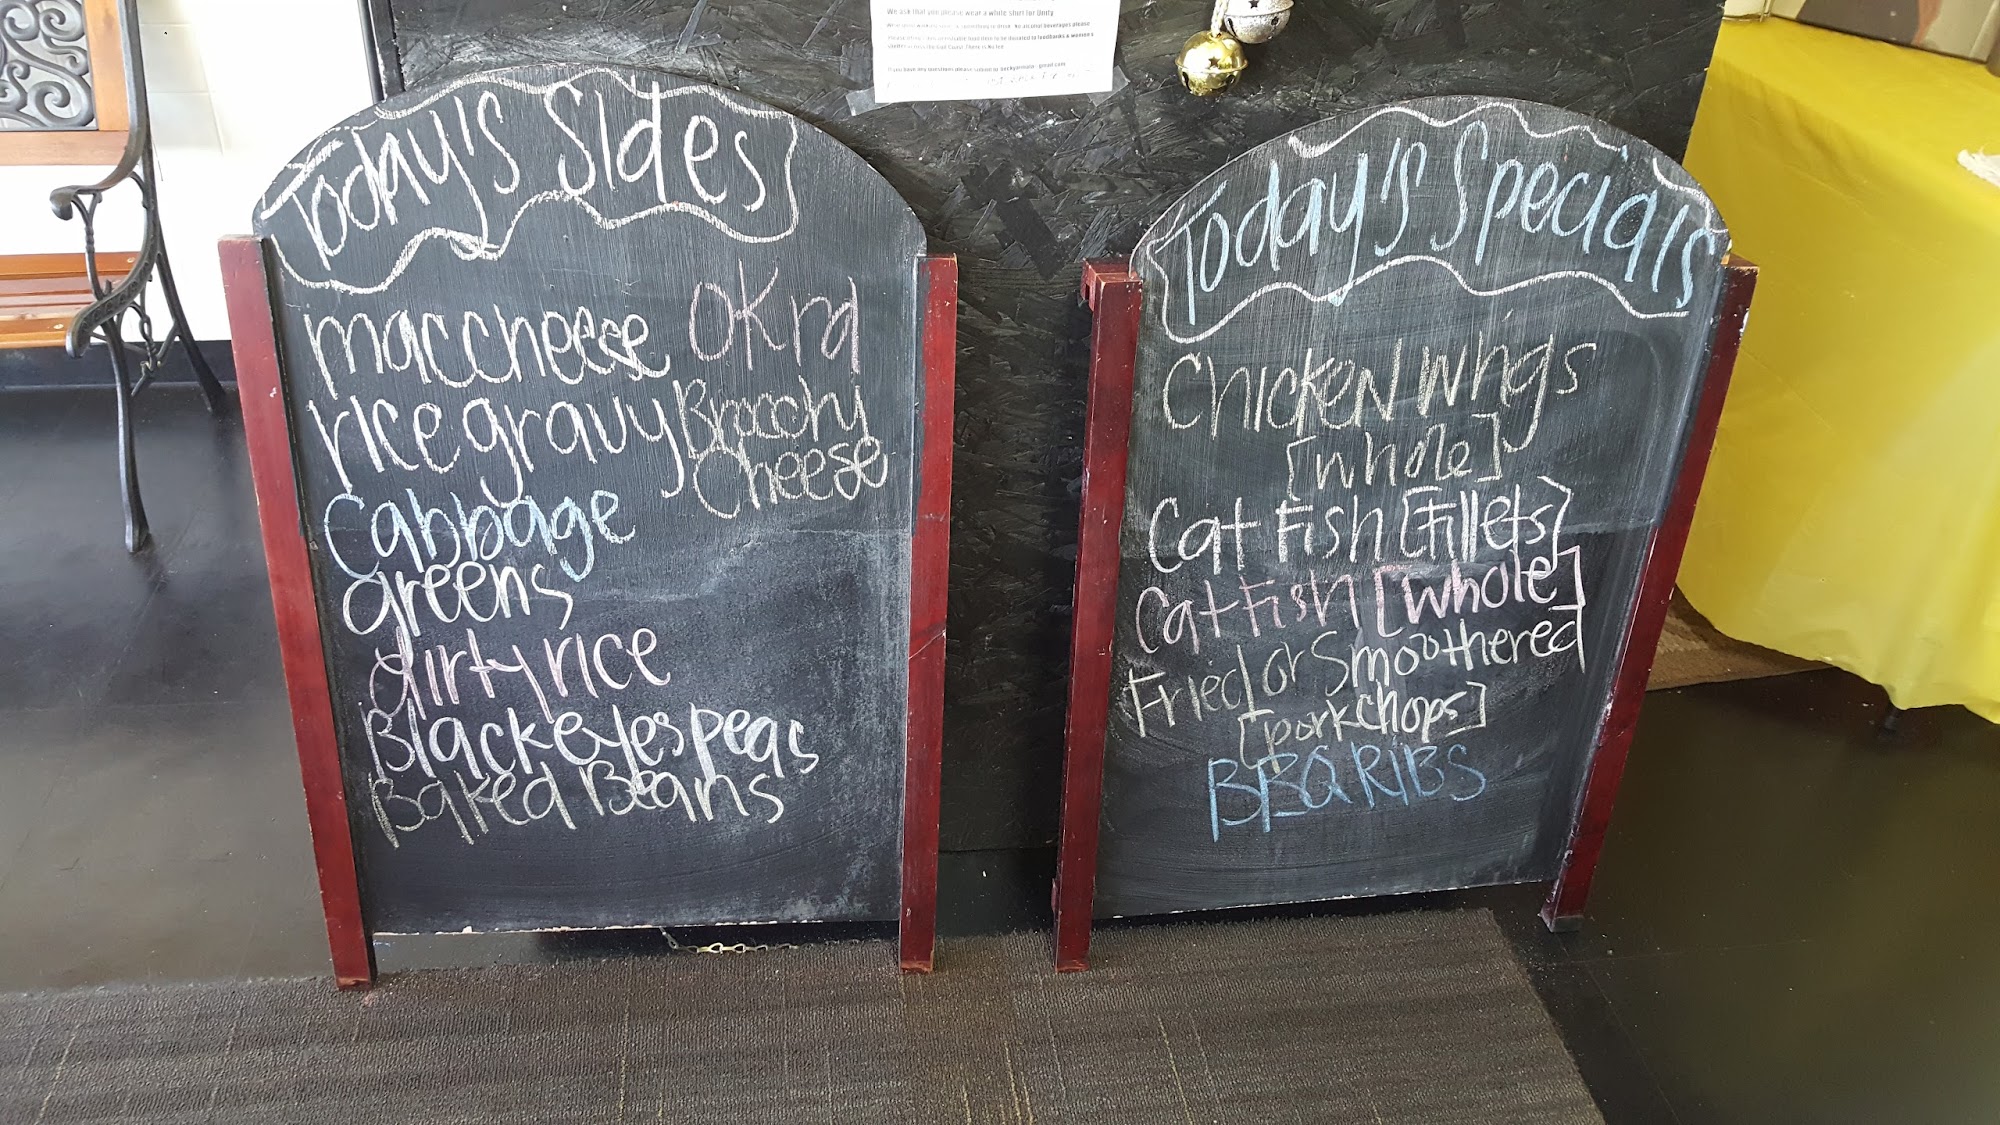 We ask that you please wear a white shirt for Unity
Today's Sides
maccheese
rice gravy
Cabbage
greens
dirty rice
Blackeyes peas
Baked Beans
OKra
Broochy
Cheese
Today's Specials
Chicken Whigs
[whole]
Cat Fish [Fillets]
Cat Fish [whole]
Fried or Smoothered
[porkchops]
BBQ RIBS